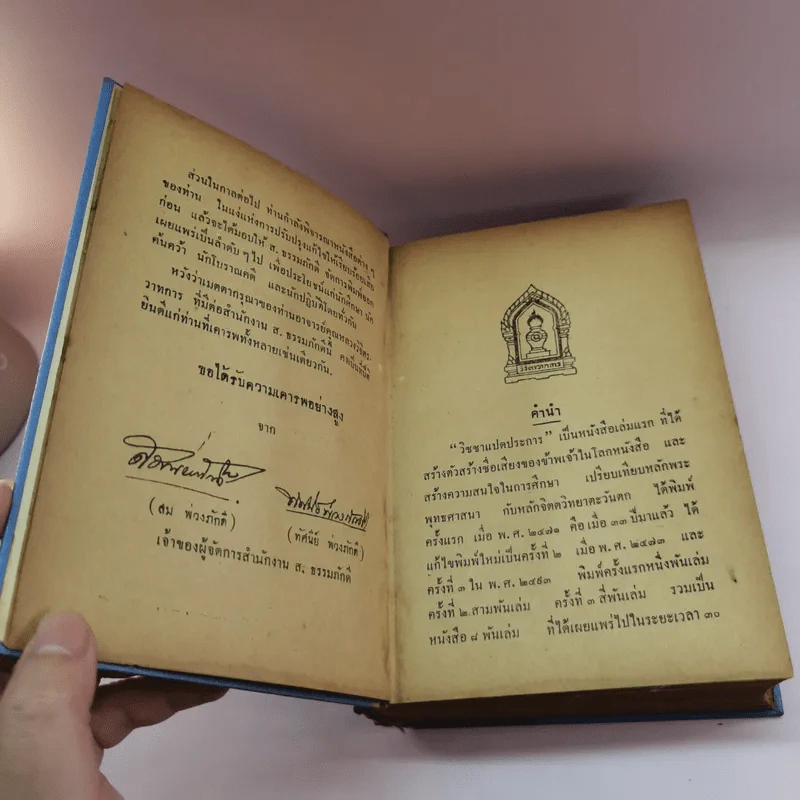 ส่วนในกาลต่อไป ท่านกำลังพิจารณาหนังสือต่าง ๆ
ของท่าน ในแง่แห่งการปรับปรุงแก้ไขให้เรียบร้อยเสีย
ก่อน แล้วจะได้มอบให้ ส. ธรรมภักดี จัดการพิมพ์ออก
เผยแพร่เป็นลำดับ ๆ ไป เพื่อประโยชน์แก่นักศึกษา นัก
ค้นคว้า นักโบราณคดี และนักปฏิบัติโดยทั่วกัน
หวังว่าเมตตากรุณาของท่านอาจารย์คุณหลวงวิจิตร.
วาทการ ที่มีต่อสำนักงาน ส. ธรรมภักดีนี้ คงเป็นที่ปีติ
ยินดีแก่ท่านที่เคารพทั้งหลายเช่นเดียวกัน.
ขอได้รับความเคารพอย่างสูง
จาก
(สม พ่วงภักดี)
(ทัศนีย์ พ่วงภักดี)
เจ้าของผู้จัดการสำนักงาน ส. ธรรมภักดี
วิจิตรวาทการ
คำนำ
“วิชชาแปดประการ” เป็นหนังสือเล่มแรก ที่ได้
สร้างตัวสร้างชื่อเสียงของข้าพเจ้าในโลกหนังสือ และ
สร้างความสนใจในการศึกษา เปรียบเทียบหลักพระ
พุทธศาสนา กับหลักจิตตวิทยาตะวันตก ได้พิมพ์
ครั้งแรก เมื่อ พ.ศ. ๒๔๗๑ คือเมื่อ ๓๓ ปีมาแล้ว ได้
แก้ไขพิมพ์ใหม่เป็นครั้งที่ ๒ เมื่อ พ.ศ. ๒๔๗๓ และ
ครั้งที่ ๓ ใน พ.ศ. ๒๔๙๓ พิมพ์ครั้งแรกหนึ่งพันเล่ม
ครั้งที่ ๒ สามพันเล่ม ครั้งที่ ๓ สี่พันเล่ม รวมเป็น
หนังสือ ๘ พันเล่ม ที่ได้เผยแพร่ไปในระยะเวลา ๓๐